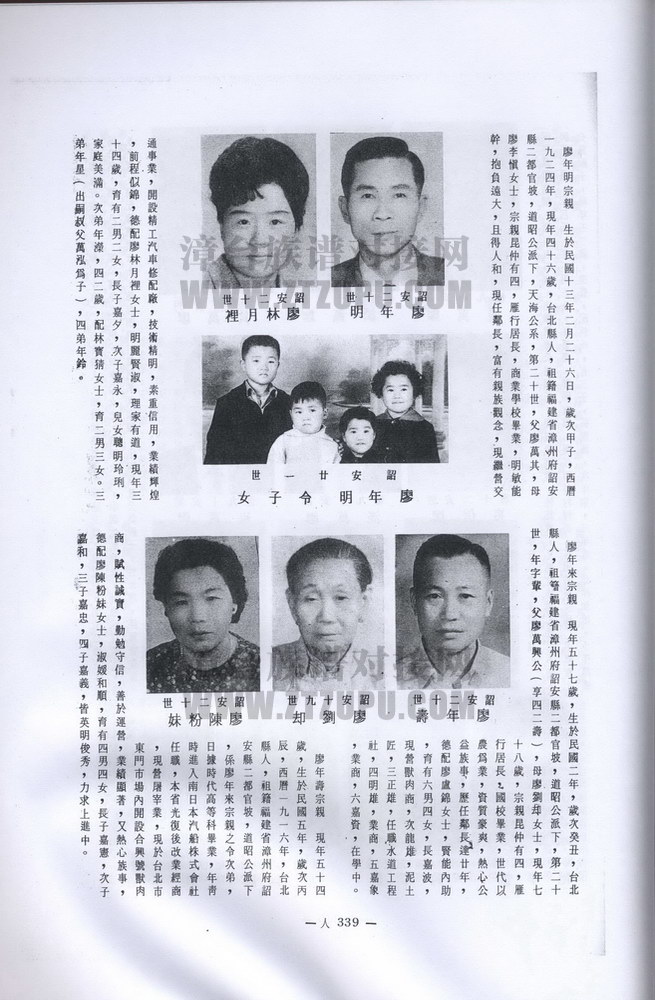 廖年明宗親　生於民國十三年二月二十六日，歲次甲子，西曆
一九二四年，現年四十六歲，台北縣人，祖籍福建省漳州府詔安
縣二都官坡，道昭公派下，天海公系，第二十世，父廖萬其，母
廖李愼女士，宗親昆仲有四，雁行居長，商業學校畢業，明敏能
幹，抱負遠大，且得人和，現任鄰長，富有親族觀念，現繼營交
世十二安詔
明年廖
世十二安詔
裡月林廖
世一廿安詔
女子令明年廖
通事業，開設精工汽車修配廠，技術精明，素重信用，業績輝煌
，前程似錦，德配廖林月裡女士，明麗賢淑，理家有道，現年三
十四歲，育有二男二女，長子嘉夕，次子嘉永，兒女聰明玲琍，
家庭美滿。次弟年濚，四二歲，配林寶猜女士，育二男三女。三
弟年星（出嗣叔父萬泓爲子），四弟年鈴。
廖年來宗親　現年五十七歲，生於民國二年，歲次癸丑，台北
縣人，祖籍福建省漳州府詔安縣二都官坡，道昭公派下，第二十
世，年字輩，父廖萬興公（享四二壽），母廖劉却女士，現年七
十八歲，宗親昆仲有四，雁
行居長，國校畢業，世代以
農爲業，資質豪爽，熱心公
益族事，歷任鄰長達廿年，
德配廖盧錦女士，賢能內助
，育有六男四女，長嘉波，
現營獸肉商，次龍雄，泥土
匠，三正雄，任職水道工程
社，四明雄，業商，五嘉象
，業商，六嘉資，在學中。
世十二安詔
壽年廖
世九十安詔
却劉廖
世十二安詔
妹粉陳廖
廖年壽宗親　現年五十四
歲，生於民國五年，歲次丙
辰，西曆一九一六年，台北
縣人，祖籍福建省漳州府詔
安縣二都官坡，道昭公派下
，係廖年來宗親之令次弟，
日據時代高等科畢業，年靑
時進入南日本汽船株式會社
任職，本省光復後改業經商
，現營屠宰業，現於台北市
東門市場內開設合興號獸肉
商，賦性誠實，勤勉守信，善於運營，業績顯著，又熱心族事，
德配廖陳粉妹女士，淑媛和順，育有四男四女，長子嘉憲，次子
嘉和，三子嘉忠，四子嘉義，皆英明俊秀，力求上進中。
— 人 339 —
漳台族谱对接网
WWW.ZTZUPU.COM
漳台族谱对接网
WWW.ZTZUPU.COM